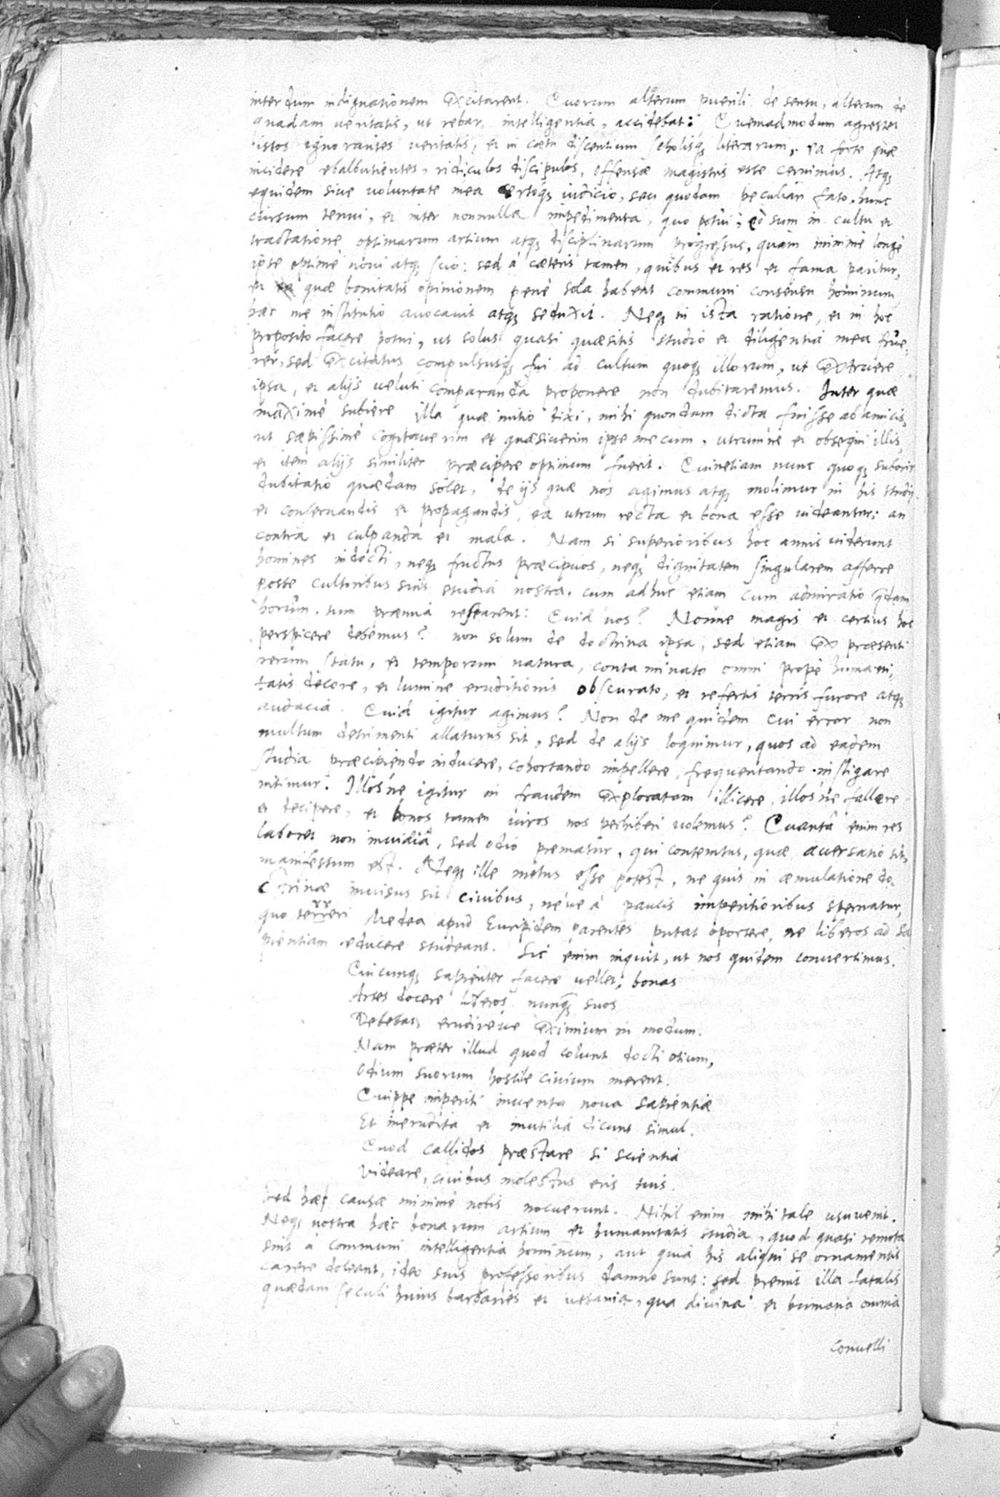 interdum indignationem excitarent. Quorum alterum puerili de sensu, alterum de
quadam veritatis, ut rebar, intelligentia, accidebat: Quemadmodum agrestes
istos ignorantes veritatis, et in cœtu discentium scholisq; literarum, ea forte quæ
incidere et balbutientes, ridiculos discipulos, offensæ magistris esse cernimus. Atq;
equidem sive voluntate mea certoq; iudicio, seu quodam peculiari fato, hunc
cursum tenui, et inter nonnulla impedimenta, quo potui, eo sum in cultu et
tractatione optimarum artium atq; disciplinarum progressus, quàm minimè longè
ipse optimè novi atq; scio: sed à cæteris tamen, quibus et res et fama paritur,
et quæ bonitatis opinionem penè sola habent communi consensu hominum
hæc me institutio avocavit atq; seduxit. Neq; in ista ratione, et in hoc
proposito facere potui, ut solus quasi quæsitis studio et diligentia mea frue-
rer, sed excitatus compulsusq; fui ad cultum quoq; illorum, ut extruere
ipsa, et alijs veluti comparanda proponere non dubitaremus. Inter quæ
maximè subiere illa quæ initio dixi, mihi quondam dicta fuisse ab amicis,
ut sæpissimè cogitaverim et quæsiverim ipse mecum, utrumne et obsequi illis,
et item alijs similiter præcipere optimum fuerit. Quinetiam nunc quoq; suboriri
dubitatio quædam solet, de ijs quæ nos agimus atq; molimur in his studijs
et conservandis et propagandis, ea utrum recta et bona esse videantur: an
contrà et culpanda et mala. Nam si superioribus hoc annis viderunt
homines indocti, neq; fructus præcipuos, neq; dignitatem singularem afferre
posse cultoribus suis studia nostra, cum adhuc etiam cum admiratio quædam
horum, tum præmia restarent: Quid nos? Nonne magis et certius hoc
perspicere debemus? non solum de doctrina ipsa, sed etiam ex præsenti
rerum statu, et temporum natura, contaminato omni propè humani-
tatis decore, et lumine eruditionis obscurato, et refertis terris furore atq;
audacia. Quid igitur agimus? Non de me quidem cui error non
multum detrimenti allaturus sit, sed de alijs loquimur, quos ad eadem
studia præcipiendo inducere, cohortando impellere, frequentando instigare
nitimur. Illos'ne igitur in fraudem exploratam illicere, illos'ne fallere
et decipere, et bonos tamen viros nos perhiberi volemus? Quanta enim res
laboret non invidiâ, sed odio prematur, qui contemtus, quæ aversatio sit,
manifestum est. Neq; ille metus esse potest, ne quis in æmulatione do-
ctrinæ invisus sit civibus, néve à paucis imperitioribus spernatur,
quo terreri Medea apud Euripidem parentes putat oportere, ne liberos ad sa-
pientiam educere studeant. Sic enim inquit, ut nos quidem convertimus.
Quicunq; sapienter facere vellet, bonas
Artes docere liberos nunq; suos
Debebat, erudireve eximium in modum.
Nam præter illud quod colunt docti otium,
Odium suorum hostile civium merent.
Quippe imperiti inventa nova sapientiæ
Et inerudita et inutilia dicunt simul.
Quod callidos præstare si scientia
Videare, civibus molestus eris tuis.
Sed hæ causæ minimè nobis nocuerunt. Nihil enim mihi tale usuvenit.
Neq; nostra hæc bonarum artium et humanitatis studia, quod quasi remota
sint à communi intelligentia hominum, aut quia his aliqui se ornamentis
carere doleant, ideo suis professoribus damno sunt: sed premit illa fatalis
quædam seculi huius barbaries et vesania, qua divina et humana omnia
convelli